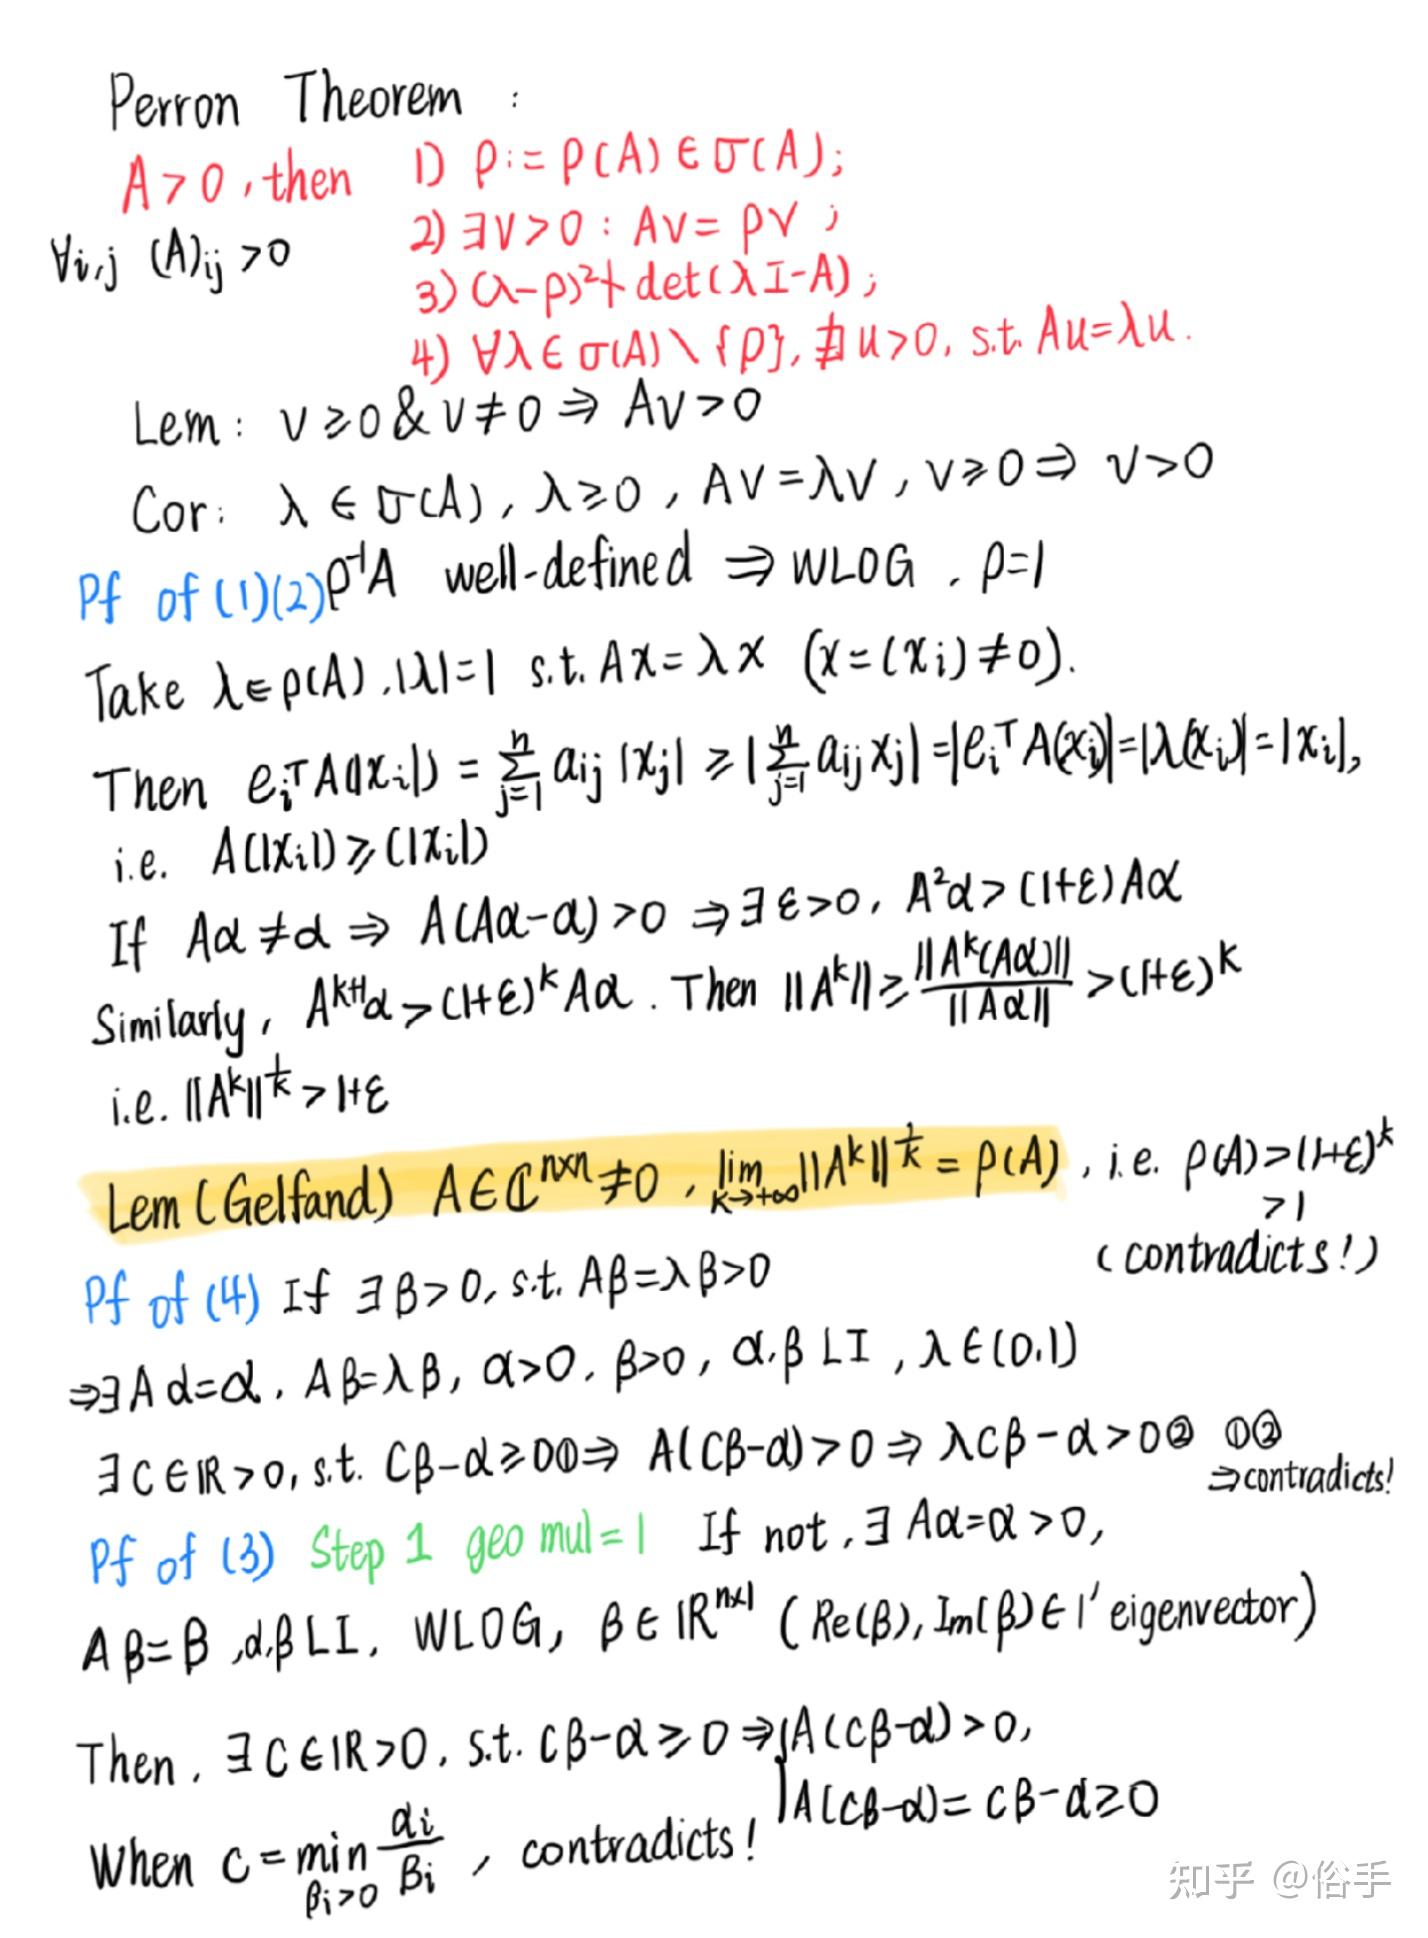 Perron Theorem :
A>0, then 1) ρ := ρ(A) ∈ σ(A);
∀i,j (A)ij >0 2) ∃v>0 : Av = ρv ;
3) (λ-ρ)²∤det(λI-A);
4) ∀λ∈σ(A)\{ρ}, ∄u>0, s.t. Au=λu.
Lem: v≥0 & v≠0 ⇒ Av>0
Cor: λ∈σ(A), λ≥0, Av=λv, v≥0 ⇒ v>0
Pf of (1)(2) ρ⁻¹A well-defined ⇒ WLOG, ρ=1
Take λ∈ρ(A), |λ|=1 s.t. Ax=λx (x=(xi)≠0).
Then eiᵀA(|xi|) = ∑_{j=1}^{n} aij|xj| ≥ |∑_{j=1}^{n} aijxj| = |eiᵀA(xi)| = |λ(xi)| = |xi|,
i.e. A(|xi|)≥(|xi|)
If Aα≠α ⇒ A(Aα-α)>0 ⇒ ∃ε>0, A²α>(1+ε)Aα
Similarly, A^{k+1}α>(1+ε)^k Aα. Then ||A^k|| ≥ ||A^k(Aα)|| / ||Aα|| > (1+ε)^k
i.e. ||A^k||^{1/k} > 1+ε
Lem (Gelfand) A∈ℂ^{n×n}≠0, lim_{k→+∞}||A^k||^{1/k} = ρ(A), i.e. ρ(A)>(1+ε)^k
>1
(contradicts!)
Pf of (4) If ∃β>0, s.t. Aβ=λβ>0
⇒∃Aα=α, Aβ=λβ, α>0, β>0, α,β LI, λ∈(0,1)
∃C∈ℝ>0, s.t. Cβ-α≥0① ⇒ A(Cβ-α)>0 ⇒ λCβ-α>0② ①②
⇒contradicts!
Pf of (3) Step 1 geo mul=1 If not, ∃Aα=α>0,
Aβ=β, α,β LI, WLOG, β∈ℝ^{n×1} (Re(β), Im(β)∈1' eigenvector)
Then, ∃C∈ℝ>0, s.t. cβ-α≥0 ⇒ { A(cβ-α)>0,
A(cβ-α)=cβ-α≥0
When c=min_{βi>0} αi/βi, contradicts!
知乎 @俗手